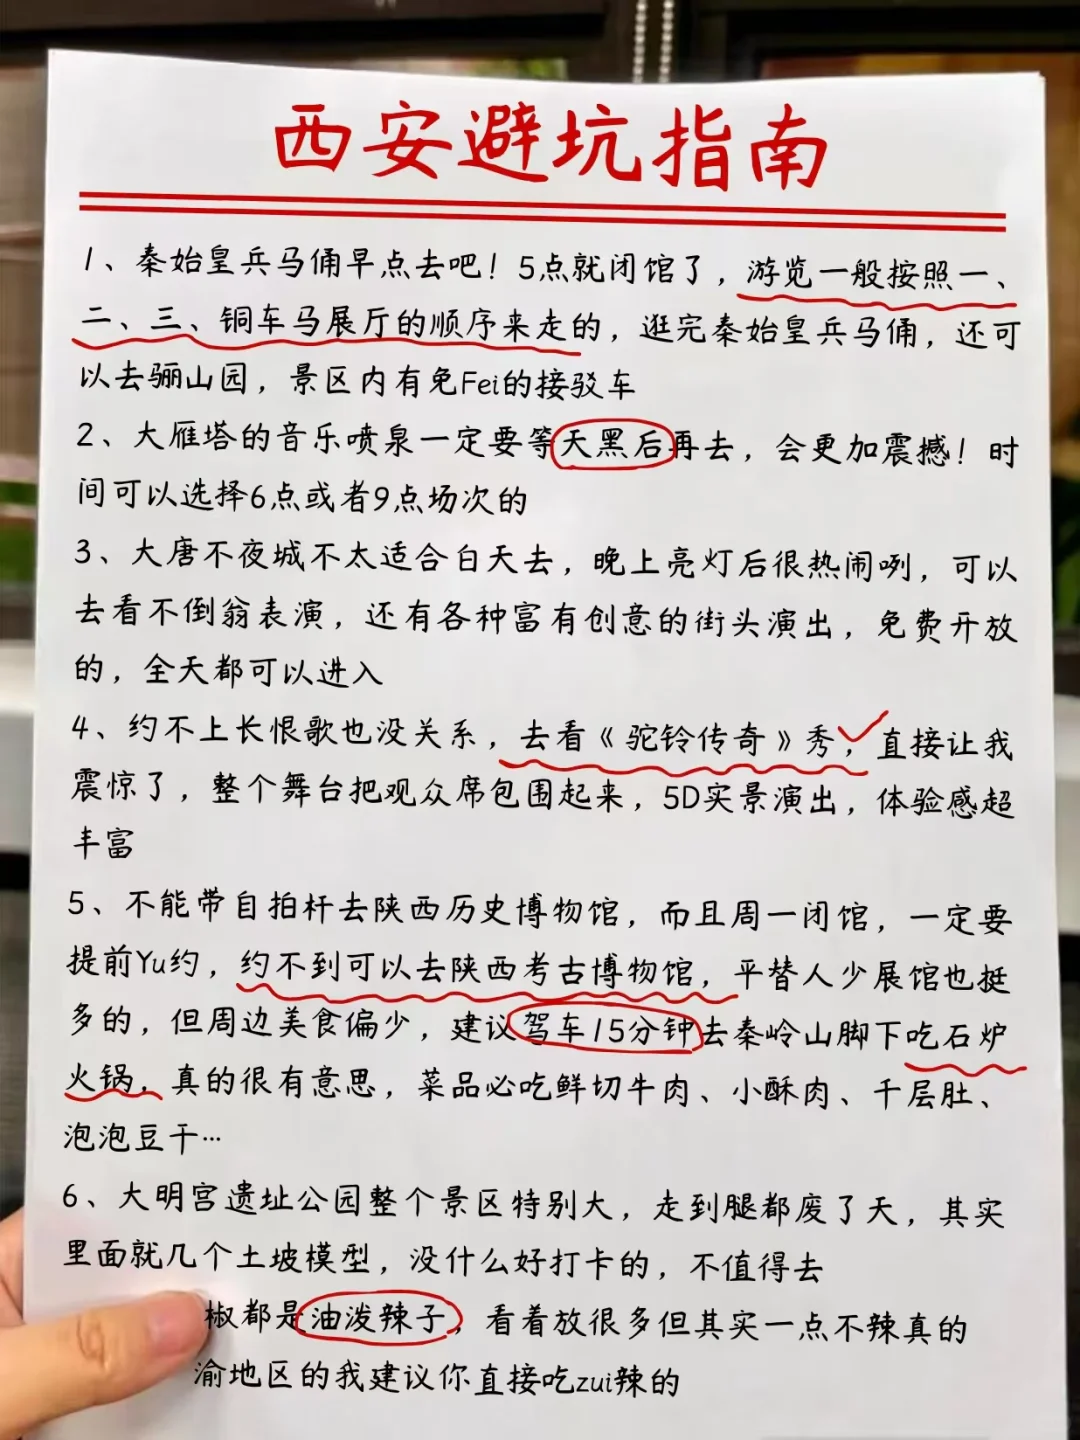 西安避坑指南
1、秦始皇兵马俑早点去吧！5点就闭馆了，游览一般按照一、
二、三、铜车马展厅的顺序来走的，逛完秦始皇兵马俑，还可
以去骊山园，景区内有免Fei的接驳车
2、大雁塔的音乐喷泉一定要等天黑后再去，会更加震撼！时
间可以选择6点或者9点场次的
3、大唐不夜城不太适合白天去，晚上亮灯后很热闹咧，可以
去看不倒翁表演，还有各种富有创意的街头演出，免费开放
的，全天都可以进入
4、约不上长恨歌也没关系，去看《驼铃传奇》秀，直接让我
震惊了，整个舞台把观众席包围起来，5D实景演出，体验感超
丰富
5、不能带自拍杆去陕西历史博物馆，而且周一闭馆，一定要
提前Yu约，约不到可以去陕西考古博物馆，平替人少展馆也挺
多的，但周边美食偏少，建议驾车15分钟去秦岭山脚下吃石炉
火锅，真的很有意思，菜品必吃鲜切牛肉、小酥肉、千层肚、
泡泡豆干…
6、大明宫遗址公园整个景区特别大，走到腿都废了天，其实
里面就几个土坡模型，没什么好打卡的，不值得去
椒都是油泼辣子，看着放很多但其实一点不辣真的
渝地区的我建议你直接吃zui辣的